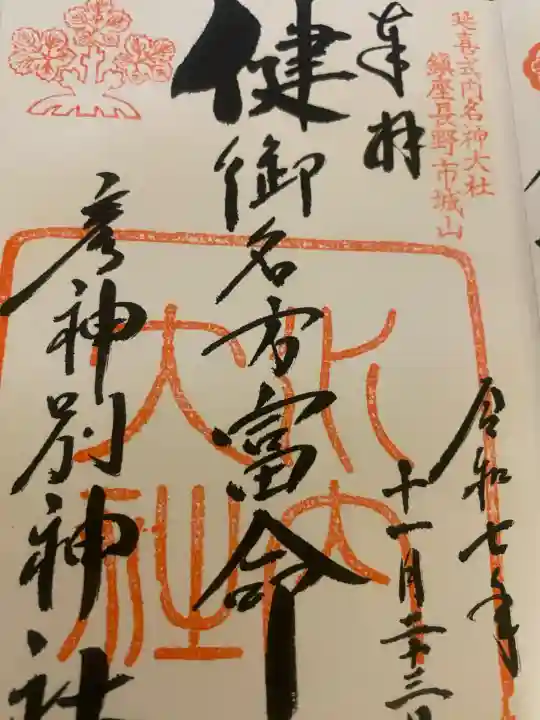 延喜式内名神大社
鎮座長野市城山
奉拝
健御名方富命
彦神別神社
令和七年
十一月二十三日
水内
大社